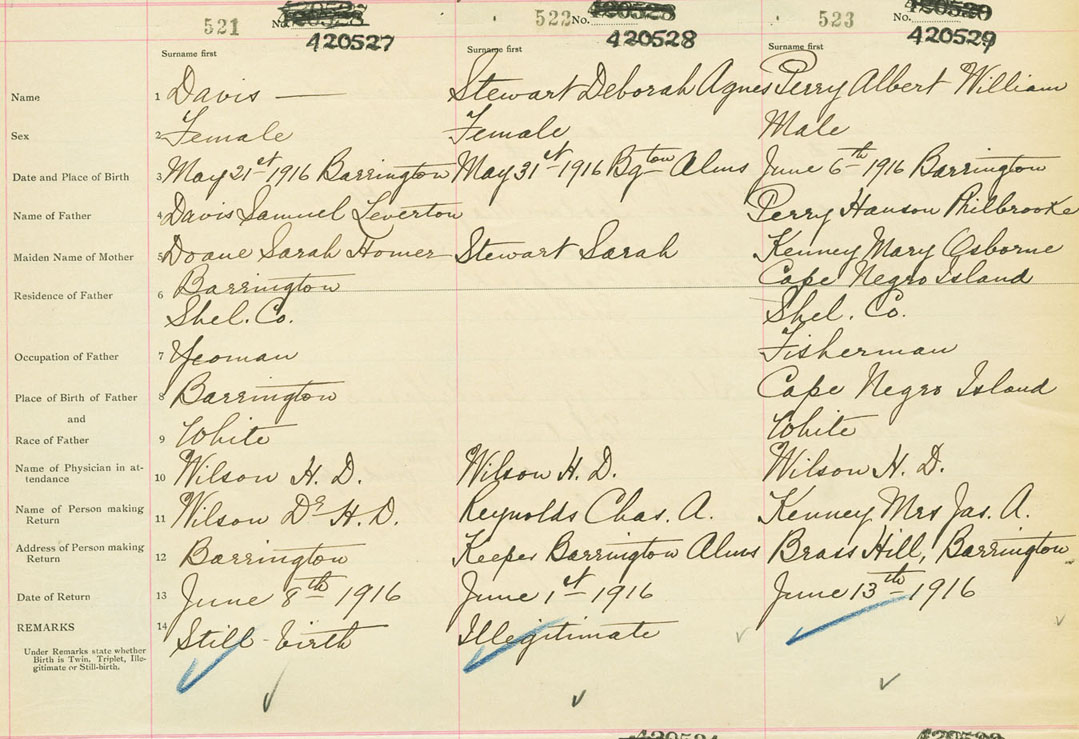 521 No. 522 No. 523 No.
420527 420528 420529
Surname first Surname first Surname first
Name 1 Davis — Stewart Deborah Agnes Perry Albert William
Sex 2 Female Female Male
Date and Place of Birth 3 May 21st 1916 Barrington May 31st 1916 Bgton Alms June 6th 1916 Barrington
Name of Father 4 Davis Samuel Leverton Perry Hanson Philbrooke
Maiden Name of Mother 5 Doane Sarah Homer Stewart Sarah Kenney Mary Osborne
Residence of Father 6 Barrington Cape Negro Island
Shel. Co. Shel. Co.
Occupation of Father 7 Yeoman Fisherman
Place of Birth of Father 8 Barrington Cape Negro Island
and
Race of Father 9 White White
Name of Physician in at-
tendance 10 Wilson H. D. Wilson H. D. Wilson H. D.
Name of Person making
Return 11 Wilson Dr H. D. Reynolds Chas. A. Kenney Mrs Jas. A.
Address of Person making
Return 12 Barrington Keeper Barrington Alms Brass Hill, Barrington
Date of Return 13 June 8th 1916 June 1st 1916 June 13th 1916
REMARKS 14 Still-birth Illegitimate
Under Remarks state whether
Birth is Twin, Triplet, Ille-
gitimate or Still-birth.